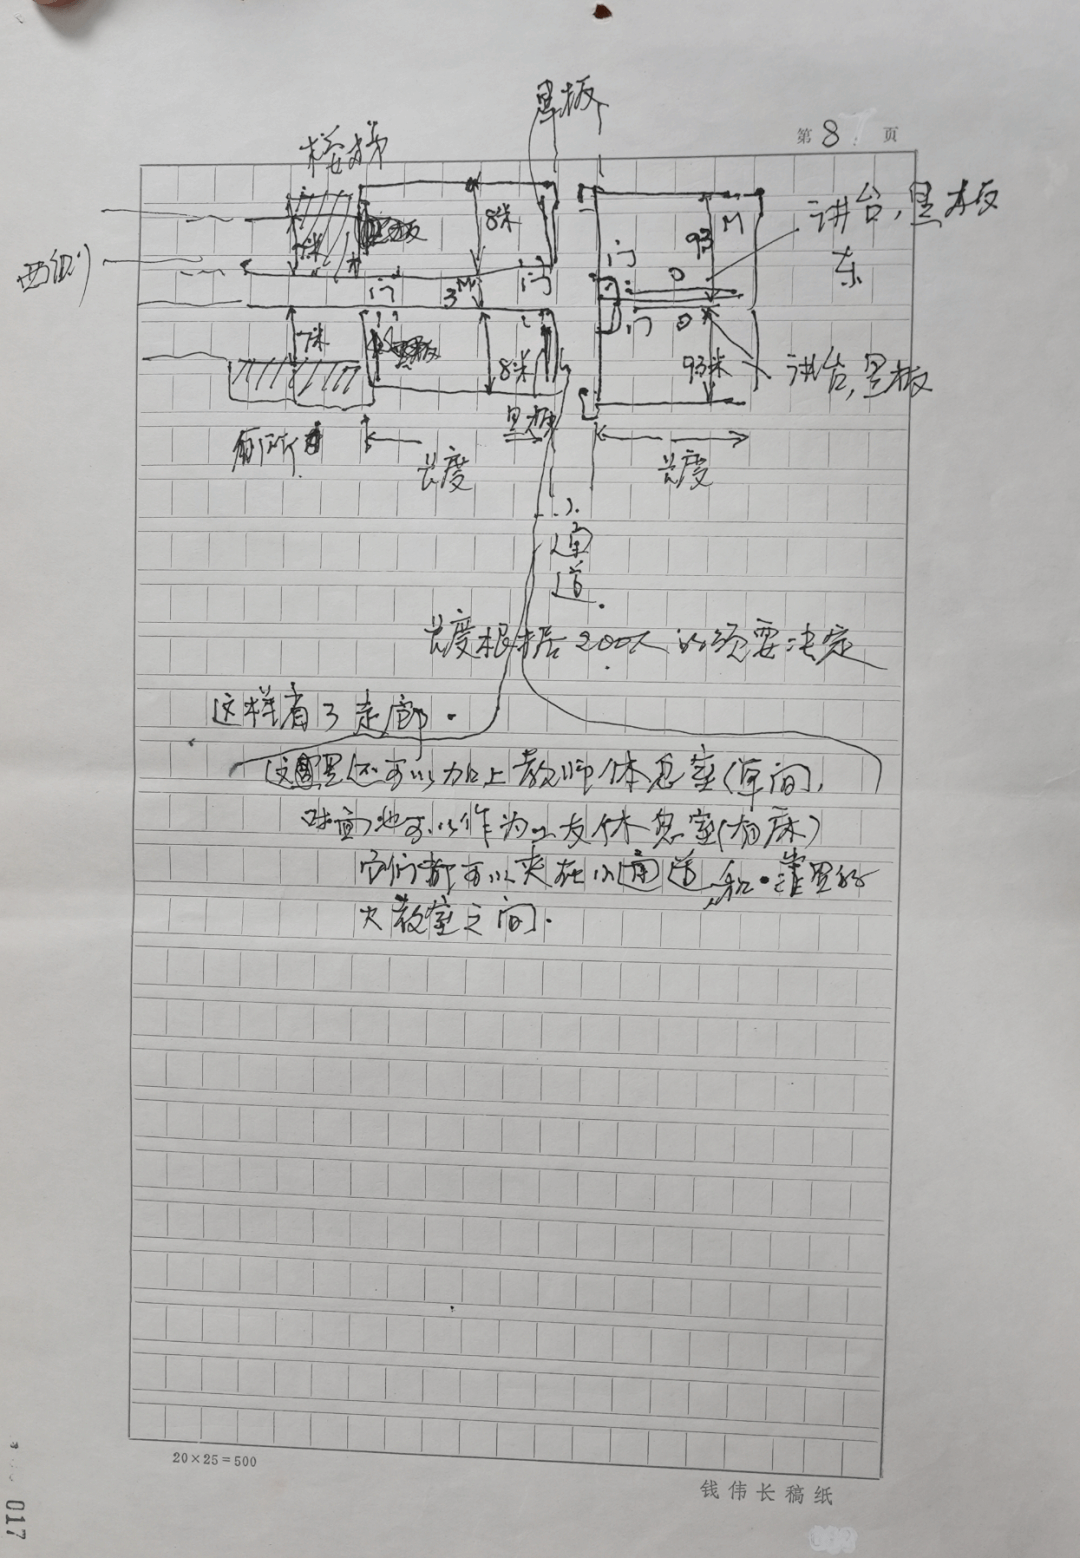 黑板
第 8 页
楼梯
讲台,黑板
8米
93
M
门
东
西侧
7米
门
3M
门
门
7米
黑板
8米
93米
讲台,黑板
黑板
厕所
长度
长度
小
通
道.
长度根据200人的须要决定
这样省了走廊.
这里还可以加上教师休息室(单间,
对面也可以作为女休息室(有床)
它们都可以夹在小通道和靠里的
大教室之间.
20×25=500
钱伟长稿纸
017